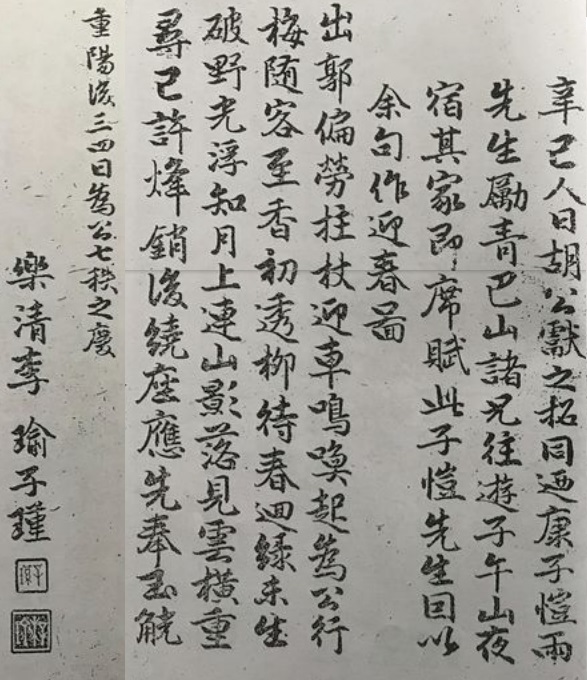 辛巳人日胡公獻之招同迺康子愷雨
先生勵青巴山諸兄往遊子午山夜
宿其家即席賦此子愷先生因以
余句作迎春啚
出郭偏勞拄杖迎車鳴喚起為公行
梅隨客至香初透柳待春迴綠未生
破野光浮知月上連山影落見雲橫重
尋已許烽銷後繞座應先奉玉觥
重陽後三四日為公七秩之慶
樂清李瑜子瑾